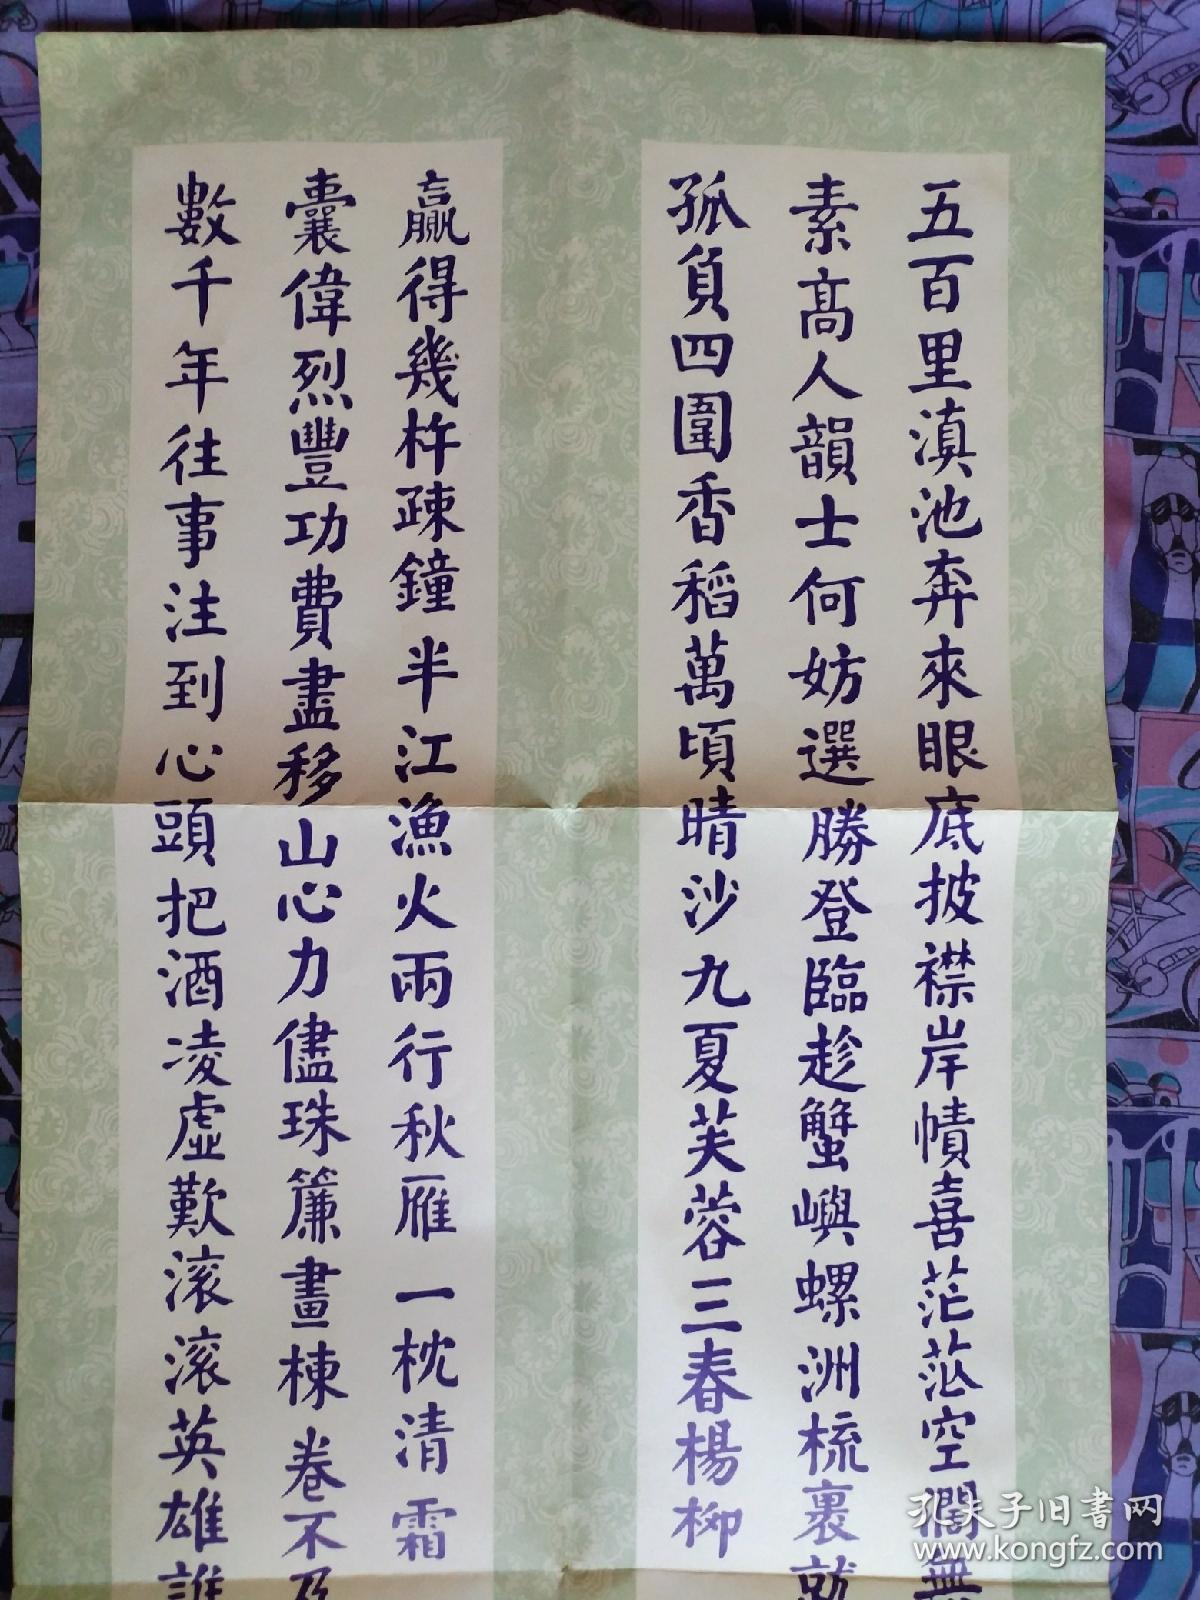 五百里滇池奔來眼底披襟岸幘喜茫茫空濶無
素高人韻士何妨選勝登臨趁蟹嶼螺洲梳裹就
孤負四圍香稻萬頃晴沙九夏芙蓉三春楊柳
數千年往事注到心頭把酒凌虛歎滚滚英雄誰
囊偉烈豐功費盡移山心力儘珠簾畫棟卷不及
贏得幾杵疎鐘半江漁火兩行秋雁一枕清霜
孔夫子旧书网
www.kongfz.com